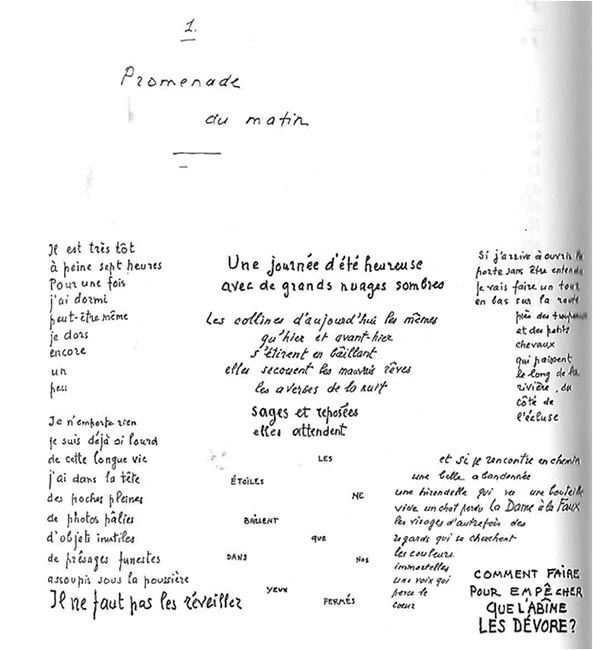 1.
Promenade
du matin
Il est très tôt
à peine sept heures
Pour une fois
j'ai dormi
peut-être même
je dors
encore
un
peu
Je n'emporte rien
je suis déjà si lourd
de cette longue vie
j'ai dans la tête
des poches pleines
de photos pâlies
d'objets inutiles
de présages funestes
assoupis sous la poussière
Il ne faut pas les réveiller
Une journée d'été heureuse
avec de grands nuages sombres
Les collines d'aujourd'hui les mêmes
qu'hier et avant-hier
s'étirent en bâillant
elles secouent les mauvais rêves
les averses de la nuit
sages et reposées
elles attendent
LES
ÉTOILES
NE
BRILLENT
QUE
DANS
NOS
YEUX
FERMÉS
Si j'arrive à ouvrir
porte sans être entendu
je vais faire un tour
en bas sur la route
près des
et des petits
chevaux
qui paissent
le long de la
rivière, du
côté de
l'écluse
et si je rencontre en chemin
une belle abandonnée
une hirondelle qui une bouteille
vide un chat perdu La Dame à la Faux
les visages d'autrefois des
regards qui se cherchent
les couleurs
immortelles
une voix qui
perce le
coeur
COMMENT FAIRE
POUR EMPÊCHER
QUE L'ABÎME
LES DÉVORE?